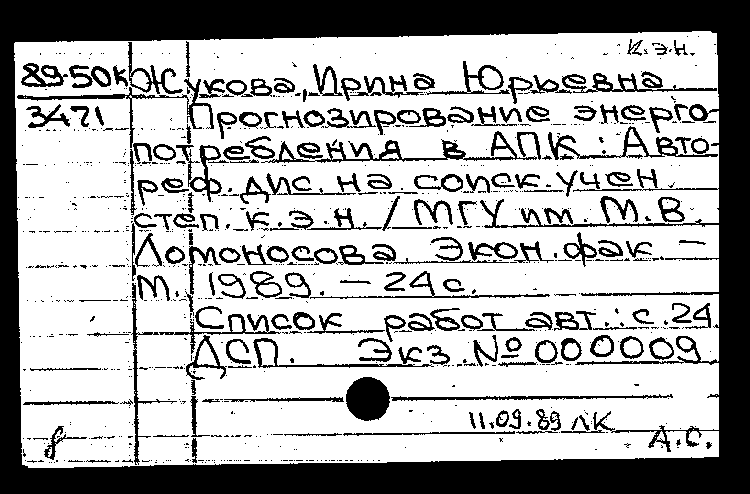 к.э.н.
89-50к Жукова, Ирина Юрьевна.
3471 Прогнозирование энерго-
потребления в АПК : Авто-
реф. дис. на соиск. учен.
степ. к.э.н. / МГУ им. М.В.
Ломоносова. Экон. фак. —
М., 1989. — 24 с.
Список работ авт.: с. 24.
ДСП. Экз. № 000009
11.09.89 ЛК
8 А.С.